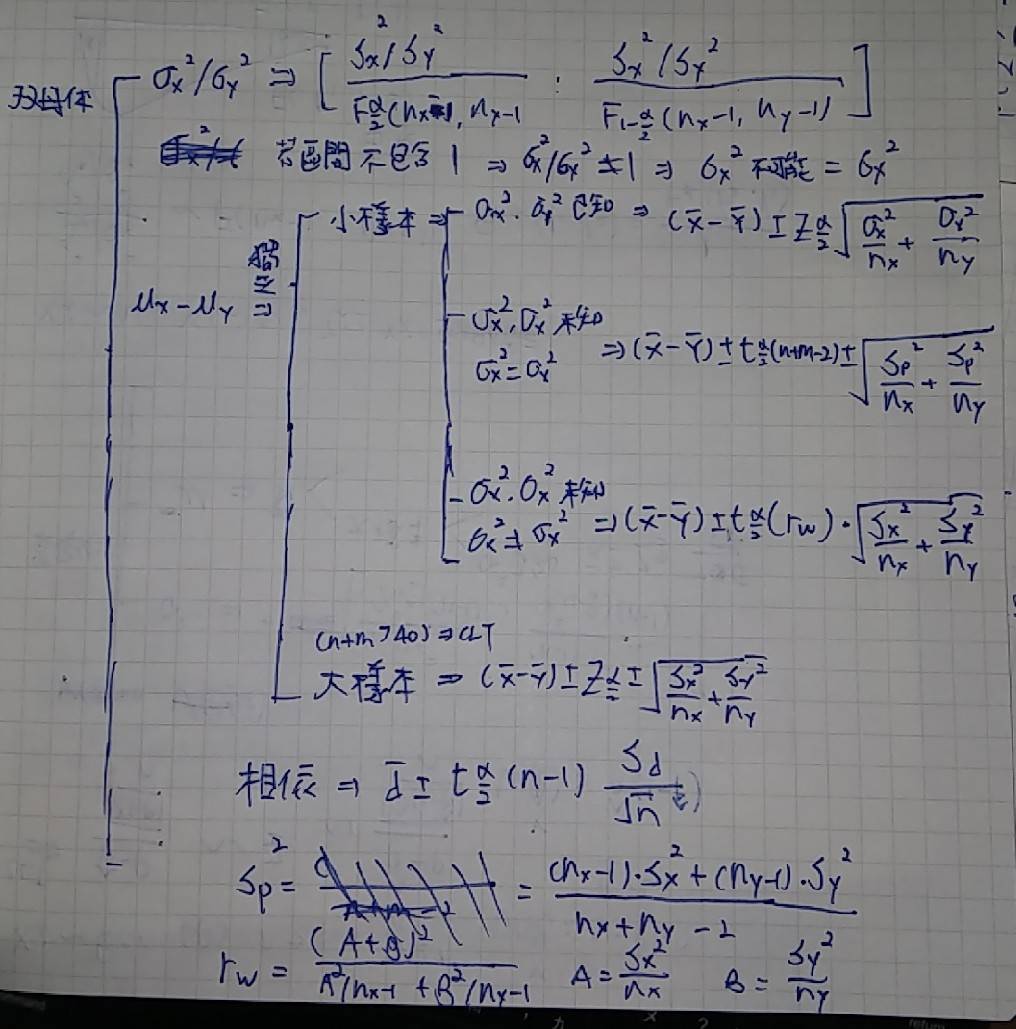 双母体
σx²/σy² ⇒ [ (Sx²/Sy²) / (F α/2 (nx-1, ny-1) , (Sx²/Sy²) / (F 1-α/2 (nx-1, ny-1)) ]
若區間不包含 1 ⇒ σx²/σx² ≠ 1 ⇒ σx² 不可能 = σx²
μx-μy 獨立 ⇒
小樣本 ⇒ σx², σy² 已知 ⇒ (x̄-Ȳ) ± Z α/2 √(σx²/nx + σy²/ny)
σx², σx² 未知
σx² = σx² ⇒ (x̄-Ȳ) ± t α/2 (n+m-2) ± √(Sp²/nx + Sp²/ny)
σx², σx² 未知
σx² ≠ σx² ⇒ (x̄-Ȳ) ± t α/2 (rw) · √(Sx²/nx + Sy²/ny)
(n+m > 40) ⇒ CLT
大樣本 ⇒ (x̄-Ȳ) ± Z α/2 ± √(Sx²/nx + Sy²/ny)
相依 ⇒ d̄ ± t α/2 (n-1) Sd/√n
Sp² = = ((nx-1)·Sx² + (ny-1)·Sy²) / (nx+ny-2)
rw = (A+B)² / (A²/nx-1 + B²/ny-1) A = Sx²/nx B = Sy²/ny